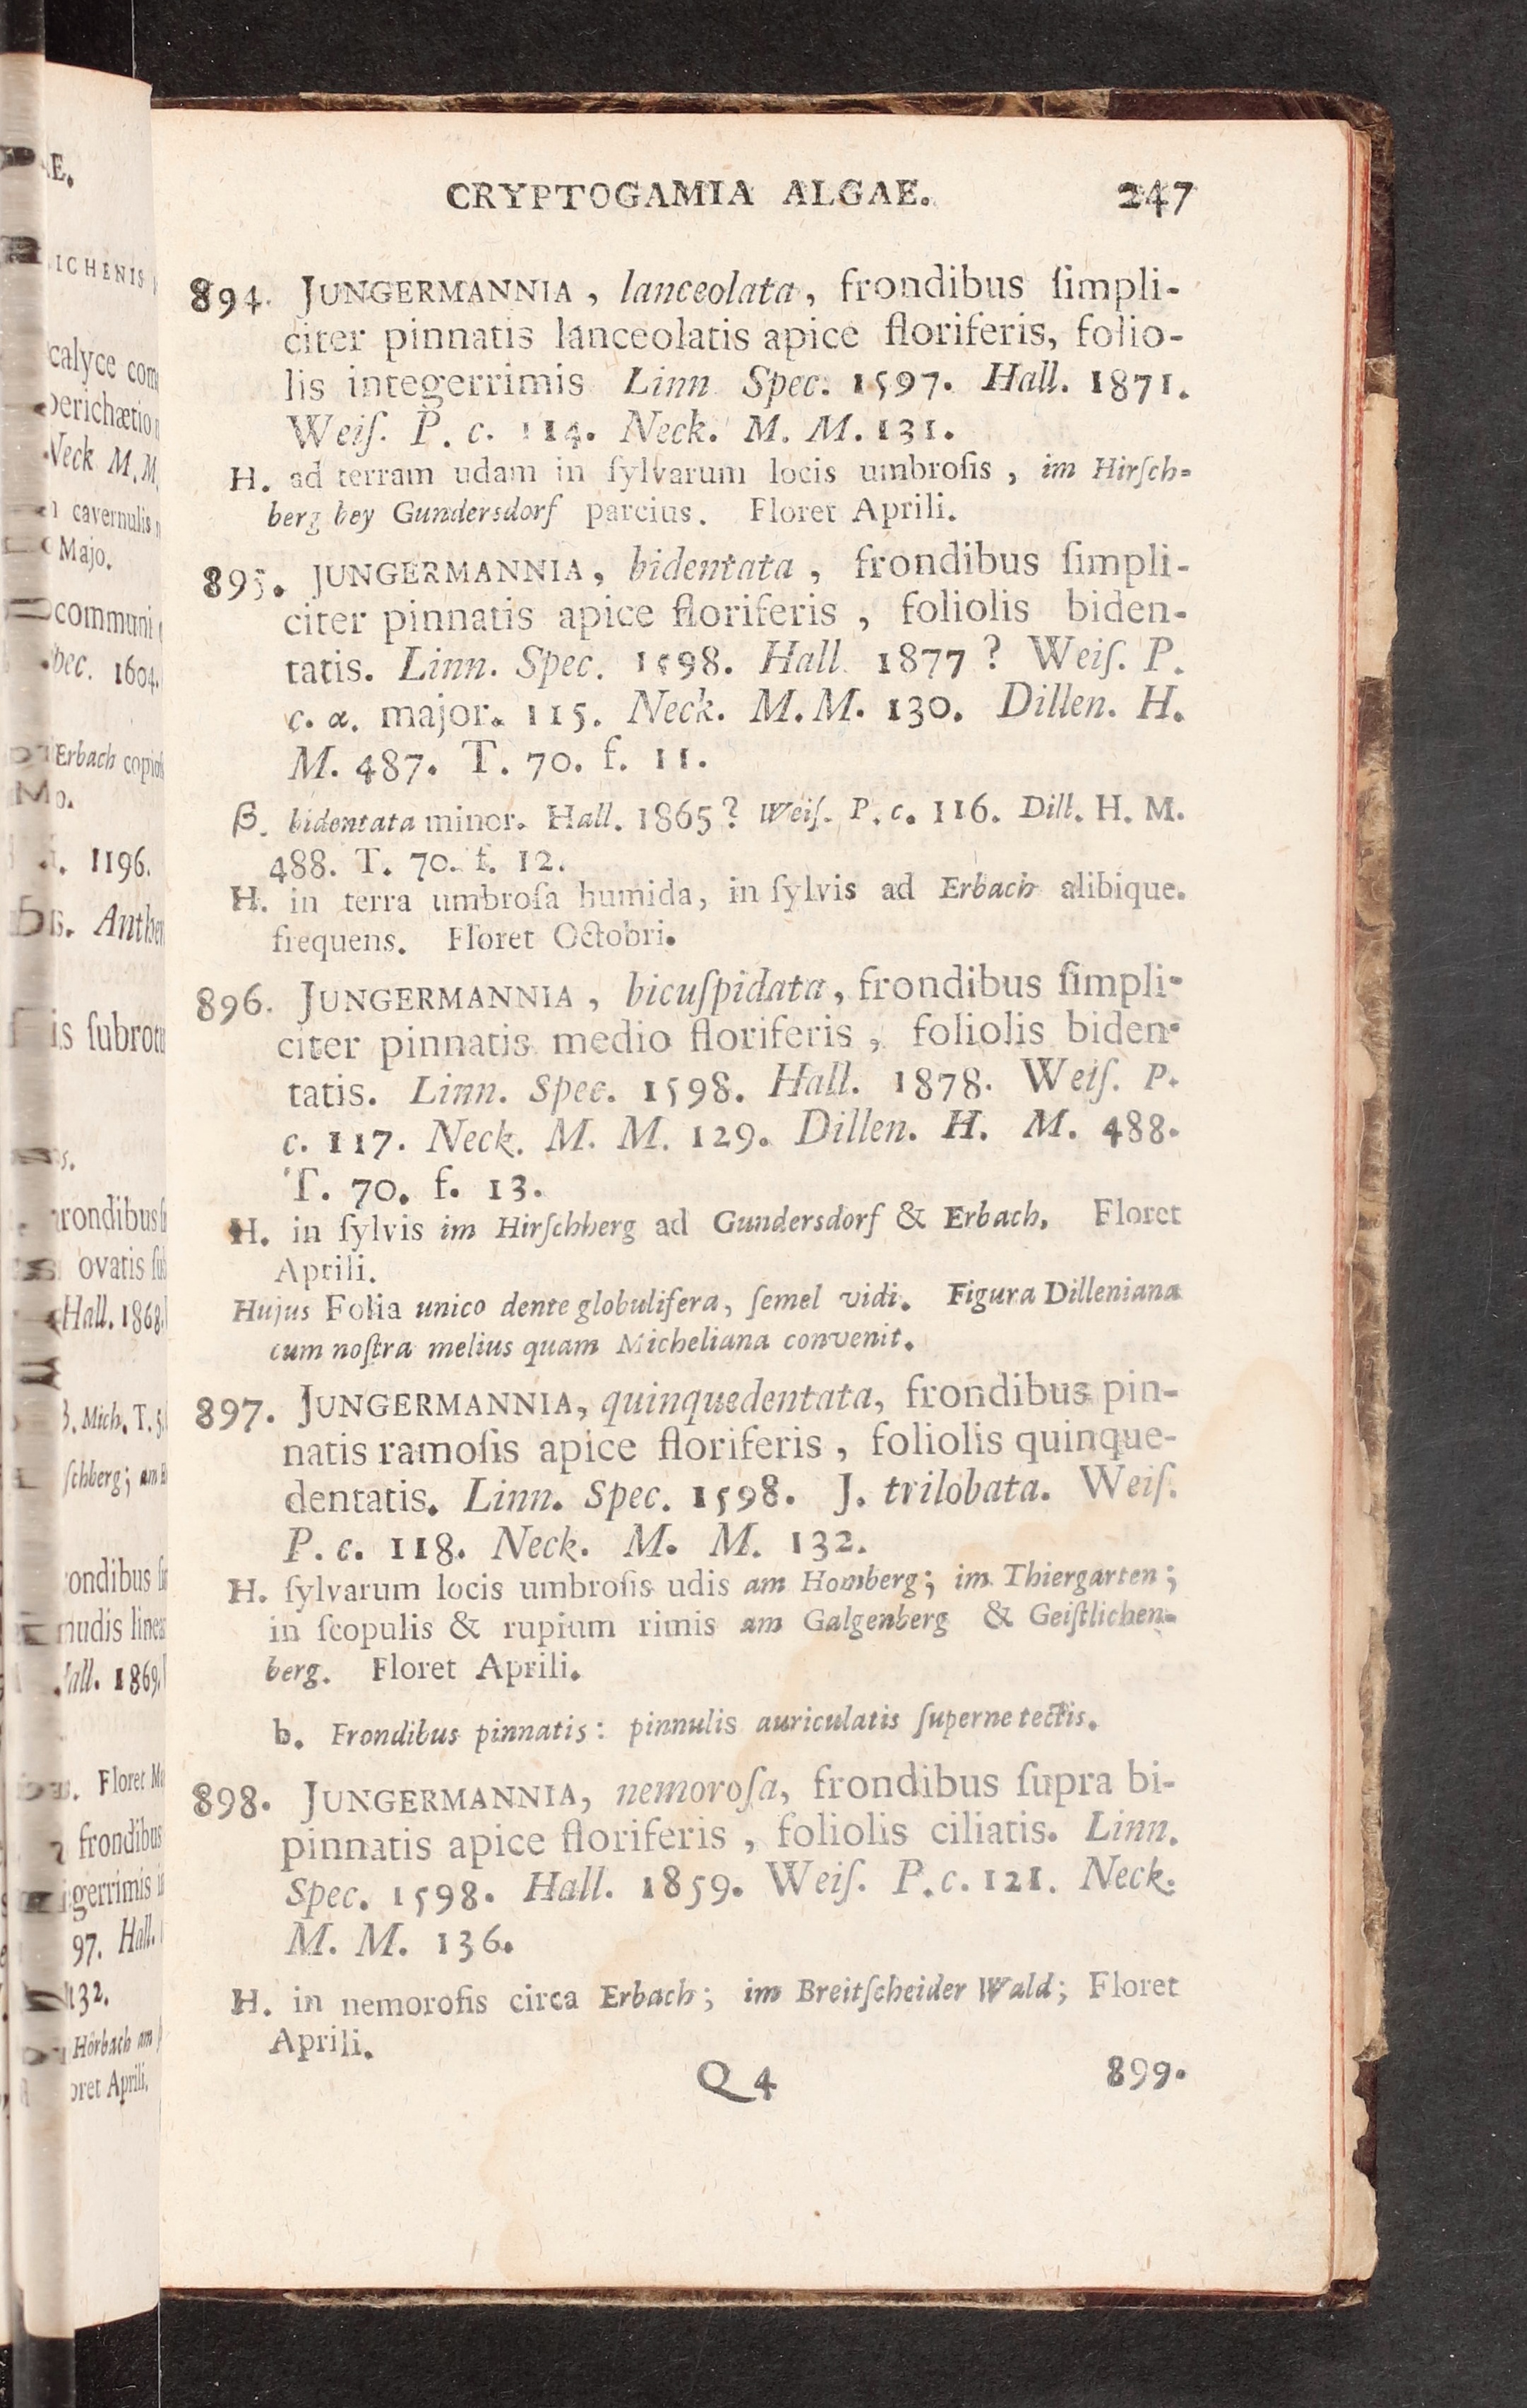 CRYPTOGAMIA ALGAE. 247
894. JUNGERMANNIA, lanceolata, frondibus ſimpli-
citer pinnatis lanceolatis apice floriferis, folio-
lis integerrimis Linn Spec. 1597. Hall. 1871.
Weiſ. P. c. 114. Neck. M. M. 131.
H. ad terram udam in ſylvarum locis umbroſis, im Hirſch-
berg bey Gundersdorf parcius. Floret Aprili.
895. JUNGERMANNIA, bidentata, frondibus ſimpli-
citer pinnatis apice floriferis, foliolis biden-
tatis. Linn. Spec. 1598. Hall. 1877? Weiſ. P.
c. α. major. 115. Neck. M. M. 130. Dillen. H.
M. 487. T. 70. f. 11.
β. bidentata minor. Hall. 1865? Weiſ. P. c. 116. Dill. H. M.
488. T. 70. f. 12.
H. in terra umbroſa humida, in ſylvis ad Erbach alibique.
frequens. Floret Octobri.
896. JUNGERMANNIA, bicuſpidata, frondibus ſimpli-
citer pinnatis medio floriferis, foliolis biden-
tatis. Linn. Spec. 1598. Hall. 1878. Weiſ. P.
c. 117. Neck. M. M. 129. Dillen. H. M. 488.
T. 70. f. 13.
H. in ſylvis im Hirſchberg ad Gundersdorf & Erbach. Floret
Aprili.
Hujus Folia unico dente globulifera, ſemel vidi. Figura Dilleniana
cum noſtra melius quam Micheliana convenit.
897. JUNGERMANNIA, quinquedentata, frondibus pin-
natis ramoſis apice floriferis, foliolis quinque-
dentatis. Linn. Spec. 1598. J. trilobata. Weiſ.
P. c. 118. Neck. M. M. 132.
H. ſylvarum locis umbroſis udis am Homberg; im Thiergarten;
in ſcopulis & rupium rimis am Galgenberg & Geiſtlichen-
berg. Floret Aprili.
b. Frondibus pinnatis: pinnulis auriculatis ſuperne tectis.
898. JUNGERMANNIA, nemoroſa, frondibus ſupra bi-
pinnatis apice floriferis, foliolis ciliatis. Linn.
Spec. 1598. Hall. 1859. Weiſ. P. c. 121. Neck.
M. M. 136.
H. in nemoroſis circa Erbach; im Breitſcheider Wald; Floret
Aprili.
Q 4 899.